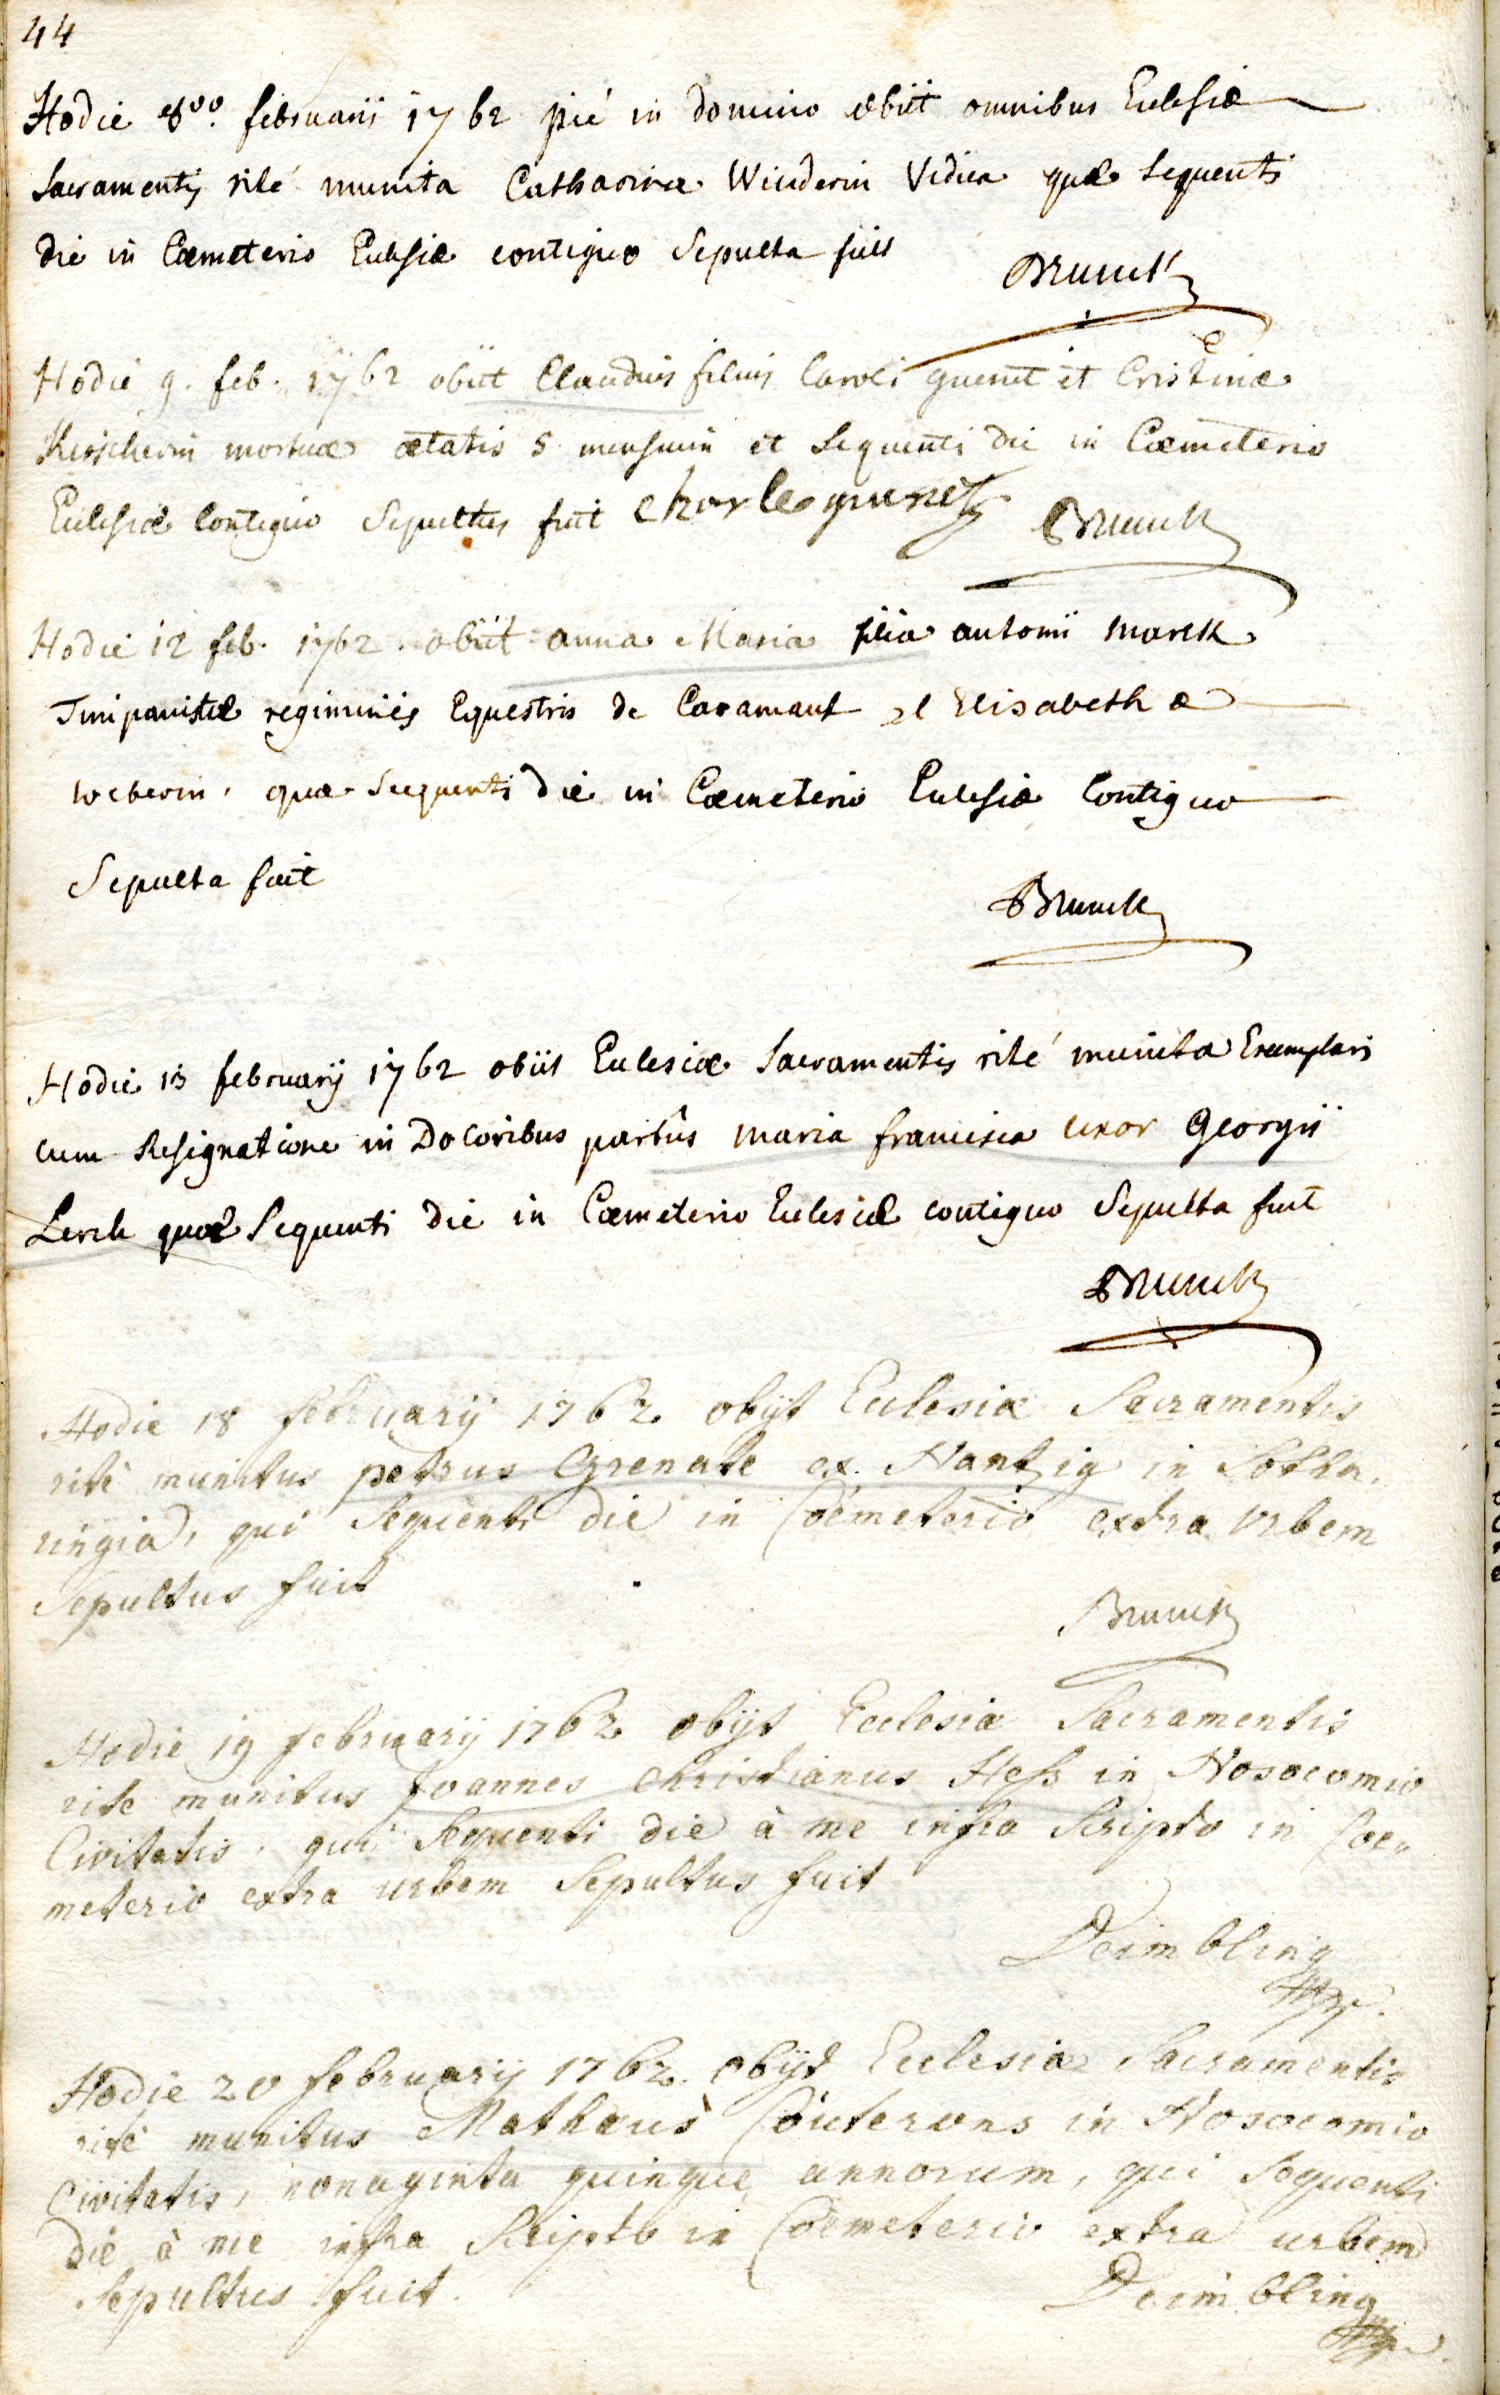 44
Hodie 8vo. februarii 1762 pié in domino obiit omnibus Eclesiæ
Sacramentis rité munita Catharina Winderin Vidua quæ Sequenti
die in Cœmeterio Eclesiæ contiguo Sepulta fuit
Brunck
Hodie 9. feb. 1762 obiit Claudius filius Caroli guenet et Cristinæ
Kirscherin mortuæ ætatis 5 mensium et Sequenti die in Cœmeterio
Eclesiæ Contiguo Sepultus fuit Charle guenet Brunck
Hodie 12 feb. 1762 obiit anna Maria filia antonii Marck
Timpanistæ regiminis Equestris de Caramant et Elisabethæ
weberin, quæ Sequenti die in Cœmeterio Eclesiæ Contiguo
Sepulta fuit
Brunck
Hodie 13 february 1762 obiit Eclesiæ Sacramentis rité munita Exemplari
cum Resignatione in Doloribus partûs maria francisca uxor Georgii
Lerch quæ Sequenti die in Cœmeterio Eclesiæ contiguo Sepulta fuit
Brunck
Hodie 18 february 1762 obijt Eclesiæ Sacramentis
rité munitus petrus Grenate ex Nantzig in Lotha-
ringia, qui Sequenti die in Coemeterio extra Urbem
Sepultus fuit
Brunck
Hodie 19 february 1762 obijt Ecclesiæ Sacramentis
rite munitus Joannes Christianus Heß in Nosocomio
Civitatis, qui Sequenti die à me infra Scripto in Coe„
meterio extra urbem Sepultus fuit
Deimbling
Hodie 20 february 1762 obijt Ecclesiæ Sacramentis
rité munitus Mathæus Couterons in Nosocomio
Civitatis, nonaginta quinque annorum, qui Sequenti
die à me infra Scripto in Coemeterio extra urbem
Sepultus fuit.
Deimbling